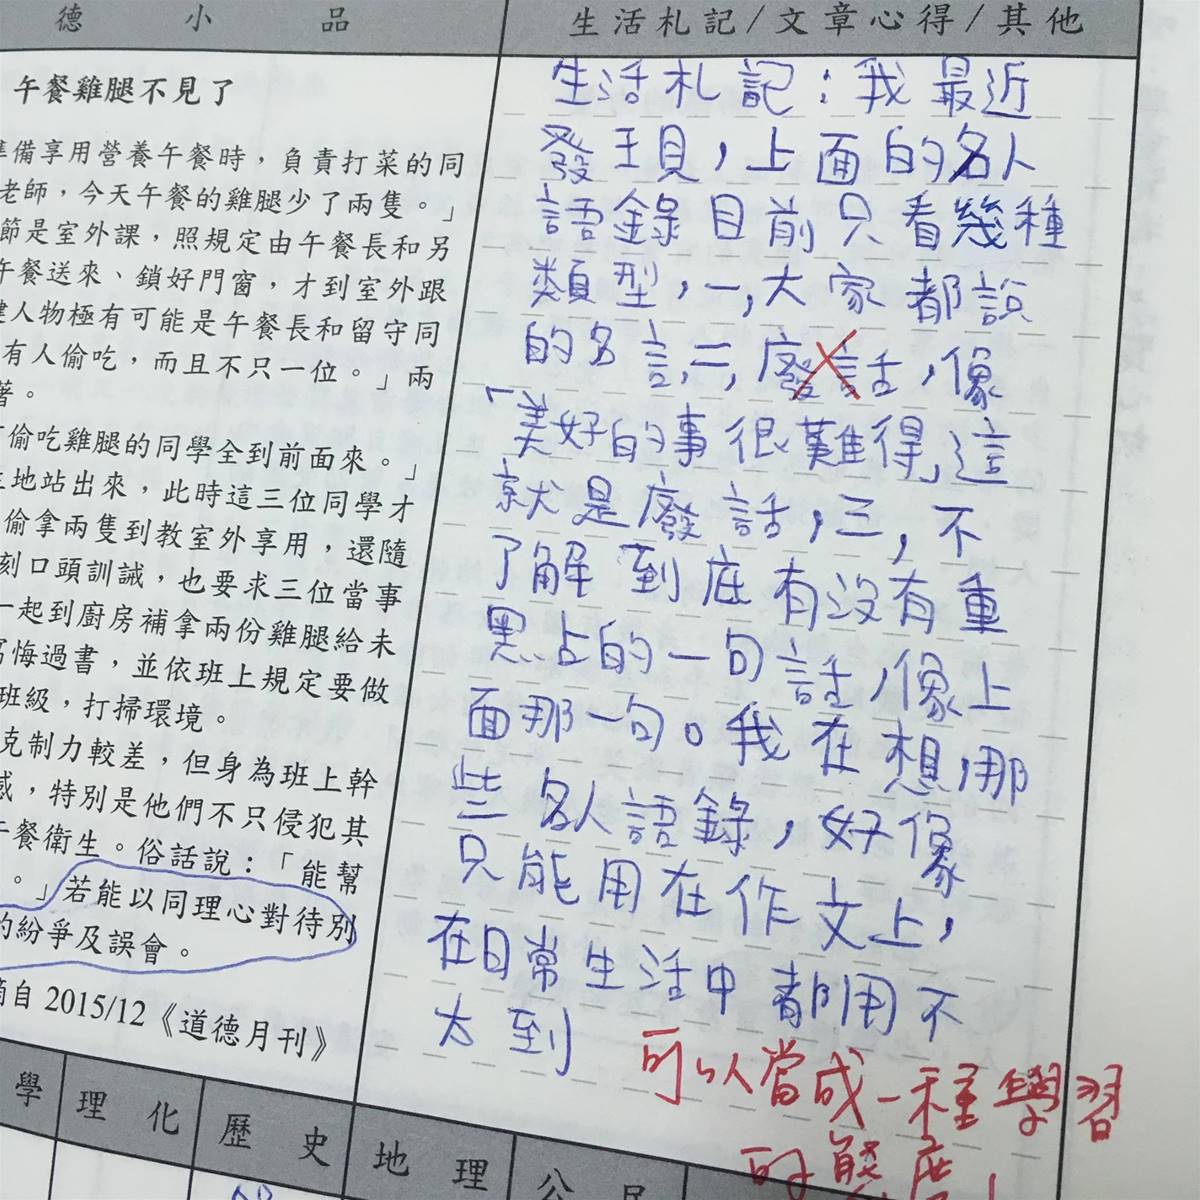 德 小 品
生活札記/文章心得/其他
午餐雞腿不見了
準備享用營養午餐時，負責打菜的同
老師，今天午餐的雞腿少了兩隻。」
節是室外課，照規定由午餐長和另
午餐送來、鎖好門窗，才到室外跟
鍵人物極有可能是午餐長和留守同
有人偷吃，而且不只一位。」兩
著。
偷吃雞腿的同學全到前面來。」
地站出來，此時這三位同學才
偷拿兩隻到教室外享用，還隨
刻口頭訓誡，也要求三位當事
一起到廚房補拿兩份雞腿給未
寫悔過書，並依班上規定要做
班級，打掃環境。
克制力較差，但身為班上幹
感，特別是他們不只侵犯其
午餐衛生。俗話說：「能幫
。」若能以同理心對待別
的紛爭及誤會。
摘自 2015/12《道德月刊》
生活札記：我最近
發現，上面的名人
語錄目前只看幾種
類型，一，大家都說
的名言，二，廢話，像
「美好的事很難得」這
就是廢話，三，不
了解到底有沒有重
點的一句話，像上
面那一句。我在想，那
些名人語錄，好像
只能用在作文上，
在日常生活中都用不
太到
可以當成一種學習
的態度！
學 理 化 歷 史 地 理 公 民